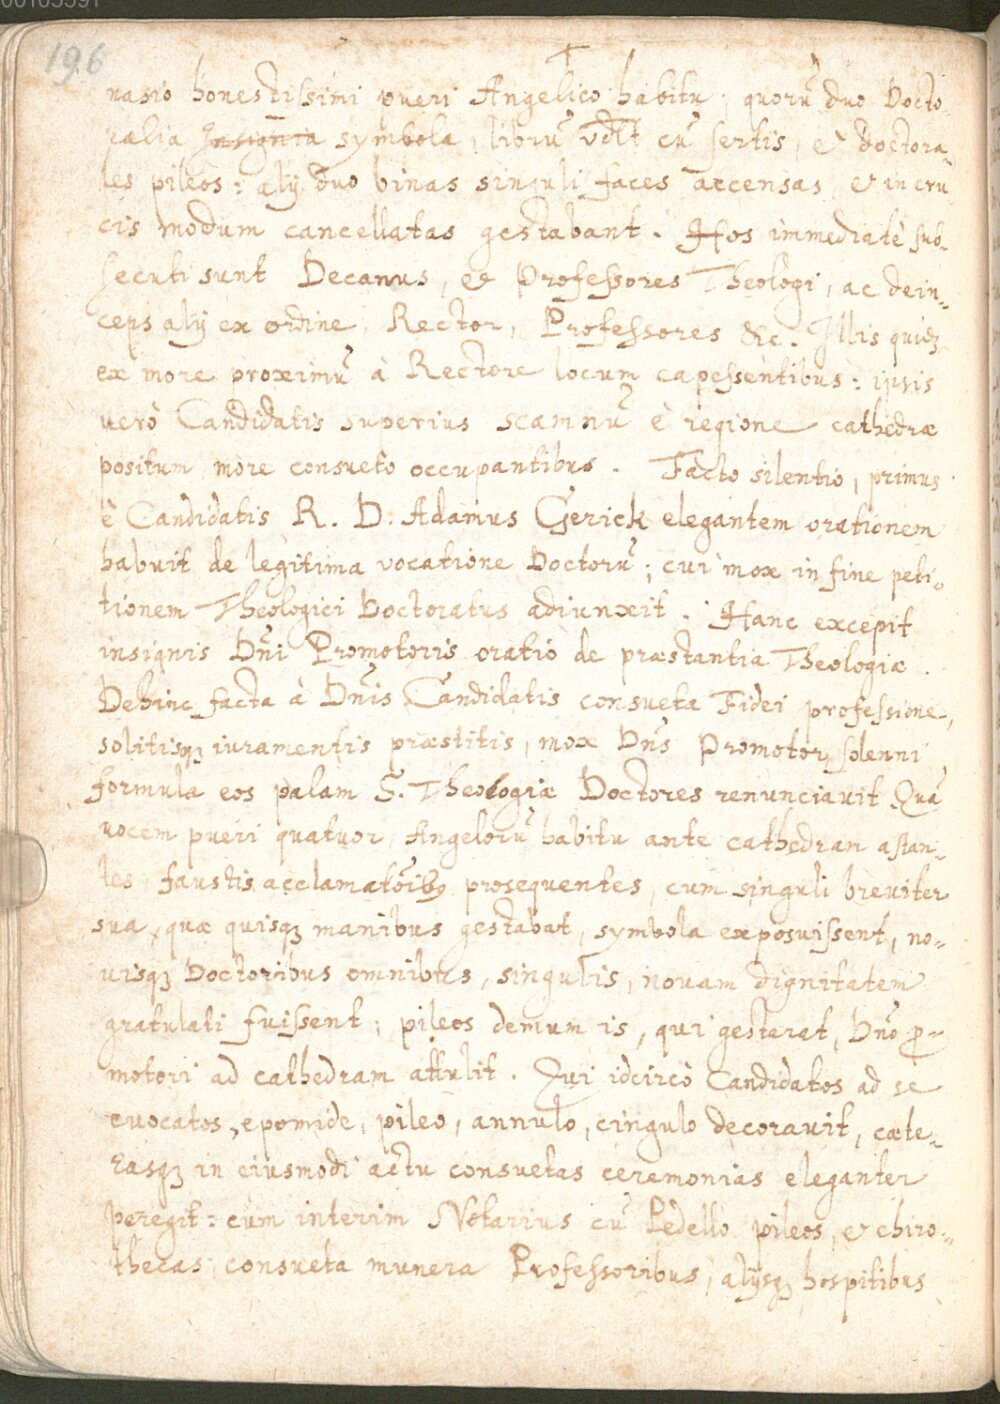 00105591
196
nasio honestissimi pueri Angelico habitu; quorũ duo Docto-
ralia Insignia symbola, librũ vdlt cũ sertis, & doctora-
les pileos: alij duo binas singuli faces accensas, et in cru
cis modum cancellatas gestabant. Hos immediatè sub-
secuti sunt Decanus, et Professores Theologi, ac dein-
ceps alij ex ordine, Rector, Professores &c. Illis quidẽ
ex more proximũ à Rectore locum capessentibus: ipsis
verò Candidatis superius scamnũ è regione cathedræ
positum more consueto occupantibus. Facto silentio, primus
è Candidatis R. D. Adamus Gerick elegantem orationem
habuit de legitima vocatione Doctorũ; cui mox in fine peti-
tionem Theologici Doctoratus adiunxit. Hanc excepit
insignis Dñi Promotoris oratio de præstantia Theologiæ.
Dehinc facta à Dñis Candidatis consueta Fidei professione,
solitisqȝ iuramentis præstitis, mox Dñs Promotor solenni
formulâ eos palam S. Theologiæ Doctores renunciauit. Quã
vocem pueri quatuor Angelorũ habitu ante cathedram astan-
tes, faustis acclamatõibȝ prosequentes, cum singuli breuiter
sua, quæ quisqȝ manibus gestabat, symbola exposuissent, no-
uisqȝ Doctoribus omnibus, singulis, nouam dignitatem
gratulati fuissent; pileos demum is, qui gestarat, Dño ꝓ-
motori ad cathedram attulit. Qui idcircò Candidatos ad se
euocatos, epomide, pileo, annulo, cingulo decorauit, cæte-
rasqȝ in eiusmodi actu consuetas ceremonias eleganter
peregit: cum interim Notarius cũ Pedello pileos, et chiro-
thecas, consueta munera Professoribus, alijsqȝ hospitibus